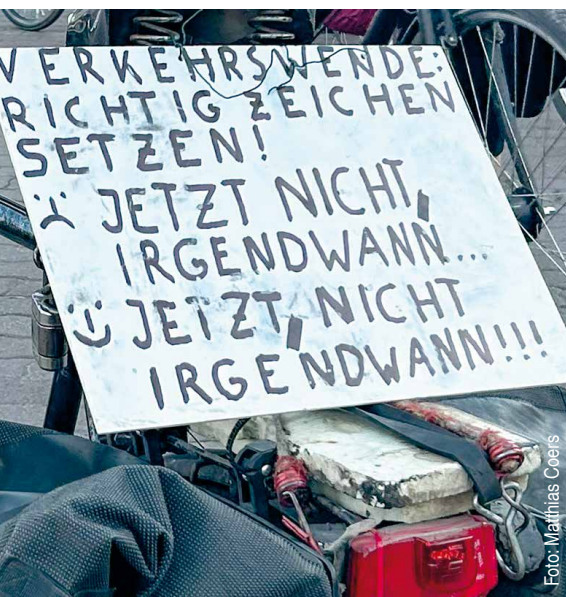 VERKEHRSWENDE:
RICHTIG ZEICHEN
SETZEN!
:( JETZT NICHT,
IRGENDWANN...
:) JETZT, NICHT
IRGENDWANN!!!
Foto: Matthias Coers